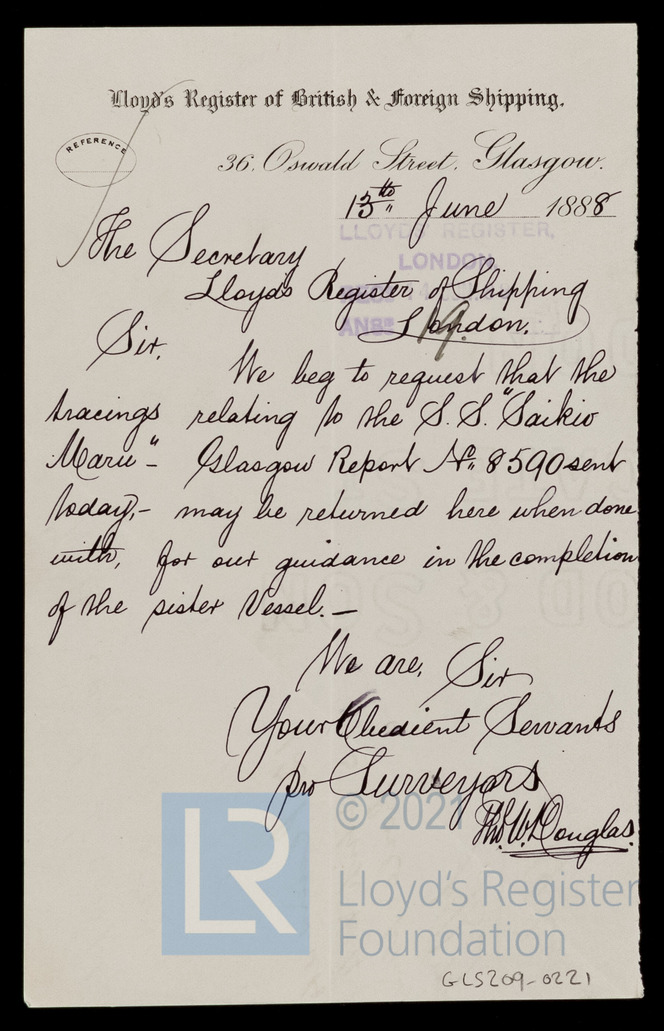 Lloyd's Register of British & Foreign Shipping.
REFERENCE
36, Oswald Street, Glasgow.
13th June 1888
LLOYD'S REGISTER,
LONDON
The Secretary
Lloyds Register of Shipping
London.
19
Sir,
We beg to request that the
tracings relating to the S.S. "Saikio
Maru" - Glasgow Report No. 8590 sent
today, - may be returned here when done
with, for our guidance in the completion
of the sister Vessel. —
We are, Sir
Your Obedient Servants
pro Surveyors
Tho. W. Douglas.
© 2021
LR
Lloyd's Register
Foundation
GLS209-0221